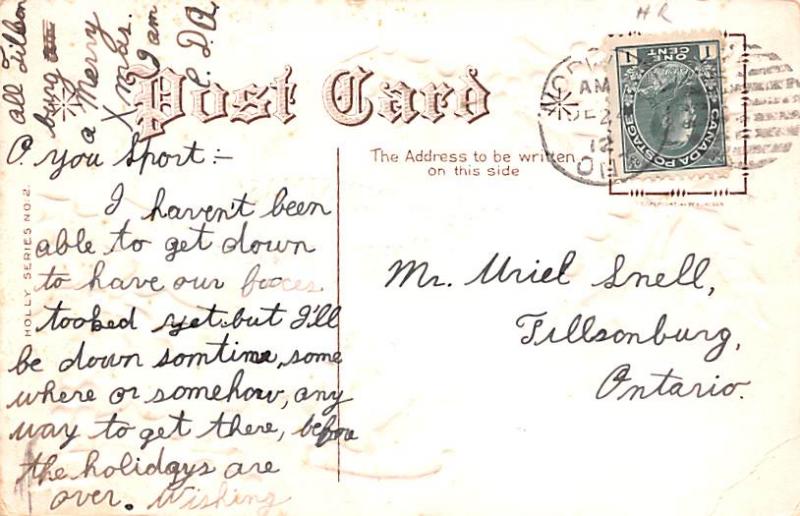 all Tillson
burg
a Merry
Xmas.
I am
C. D. Q.
Post Card
HR
1 ONE CENT 1
CANADA POSTAGE
AM
DE 2
12
The Address to be written
on this side
HOLLY SERIES NO. 2.
O. you Sport:-
I haven't been
able to get down
to have our faces
tooked yet but I'll
be down somtime, some
where or somehow, any
way to get there, before
the holidays are
over. Wishing
Mr. Uriel Snell,
Tillsonburg,
Ontario.